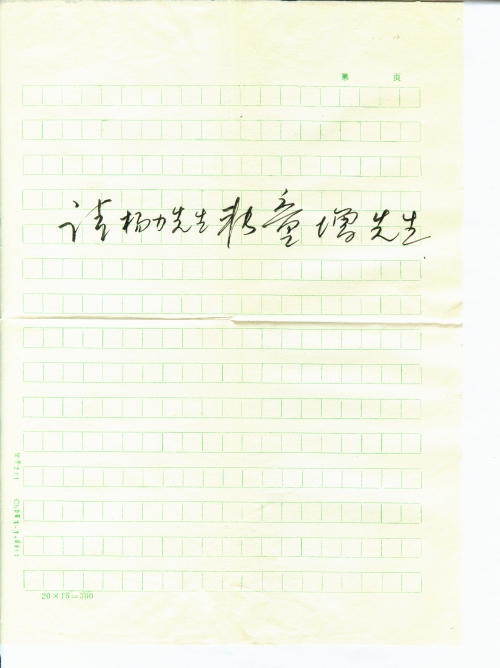 第 页
请杨力先生转童增先生
20×15=300